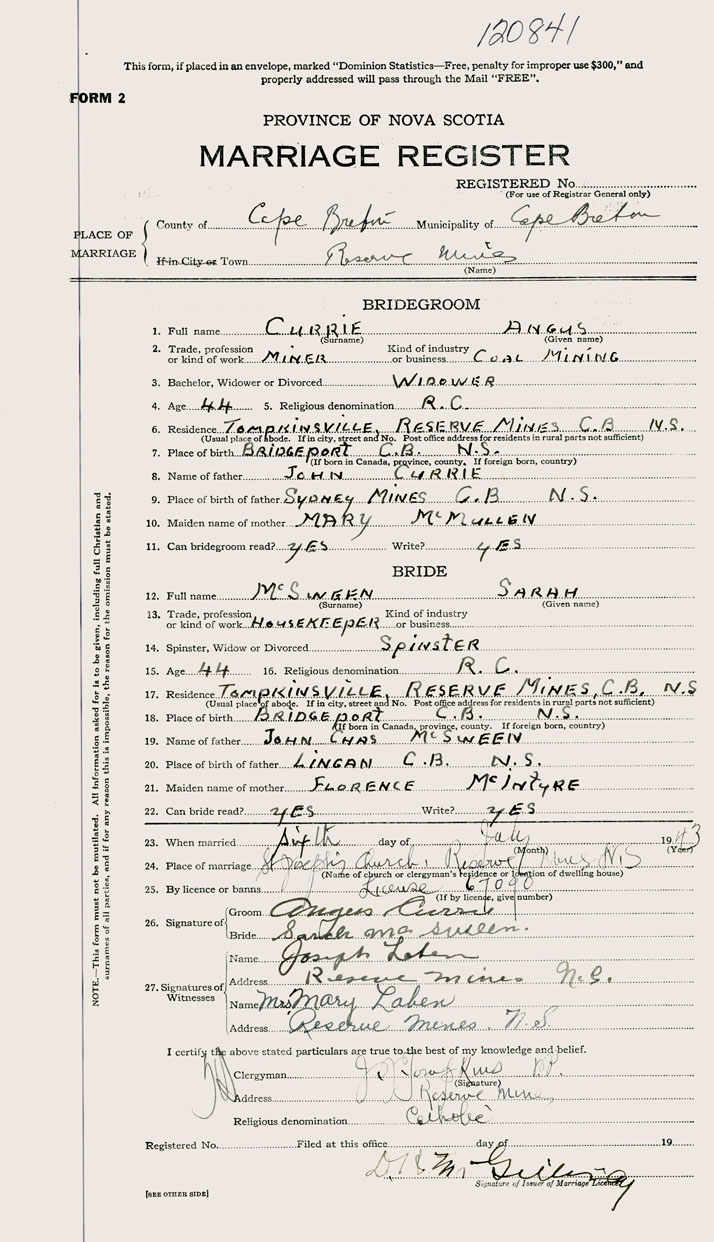 120841
This form, if placed in an envelope, marked "Dominion Statistics—Free, penalty for improper use $300," and
properly addressed will pass through the Mail "FREE".
FORM 2
PROVINCE OF NOVA SCOTIA
MARRIAGE REGISTER
REGISTERED No.
(For use of Registrar General only)
PLACE OF MARRIAGE
County of Cape Breton Municipality of Cape Breton
If in City or Town Reserve Mines
(Name)
BRIDEGROOM
1. Full name CURRIE ANGUS
(Surname) (Given name)
2. Trade, profession or kind of work MINER Kind of industry or business COAL MINING
3. Bachelor, Widower or Divorced WIDOWER
4. Age 44 5. Religious denomination R.C.
6. Residence TOMPKINSVILLE, RESERVE MINES C.B N.S.
(Usual place of abode. If in city, street and No. Post office address for residents in rural parts not sufficient)
7. Place of birth BRIDGEPORT C.B. N.S.
(If born in Canada, province, county. If foreign born, country)
8. Name of father JOHN CURRIE
9. Place of birth of father SYDNEY MINES C.B N.S.
10. Maiden name of mother MARY McMULLEN
11. Can bridegroom read? yES Write? yES
BRIDE
12. Full name McSWEEN SARAH
(Surname) (Given name)
13. Trade, profession or kind of work HOUSEKEEPER Kind of industry or business
14. Spinster, Widow or Divorced SPINSTER
15. Age 44 16. Religious denomination R.C.
17. Residence TOMPKINSVILLE, RESERVE MINES, C.B. N.S
(Usual place of abode. If in city, street and No. Post office address for residents in rural parts not sufficient)
18. Place of birth BRIDGEPORT C.B. N.S.
(If born in Canada, province, county. If foreign born, country)
19. Name of father JOHN CHAS McSWEEN
20. Place of birth of father LINGAN C.B. N.S.
21. Maiden name of mother FLORENCE McINTYRE
22. Can bride read? yES Write? yES
23. When married sixth day of July 1943
(Month) (Year)
24. Place of marriage St Joseph's Church, Reserve Mines N.S
(Name of church or clergyman's residence or location of dwelling house)
25. By licence or banns License 67090
(If by licence, give number)
26. Signature of
Groom Angus Currie
Bride Sarah Mc Sween.
27. Signatures of Witnesses
Name Joseph Laben
Address Reserve Mines N.S.
Name Mrs Mary Laben
Address Reserve Mines. N.S.
I certify the above stated particulars are true to the best of my knowledge and belief.
Clergyman P.P.
(Signature)
Address Reserve Mines
Religious denomination Catholic
Registered No. Filed at this office day of 19
Signature of Issuer of Marriage Licence
[SEE OTHER SIDE]
NOTE.—This form must not be mutilated. All Information asked for is to be given, including full Christian and
surnames of all parties, and if for any reason this is impossible, the reason for the omission must be stated.